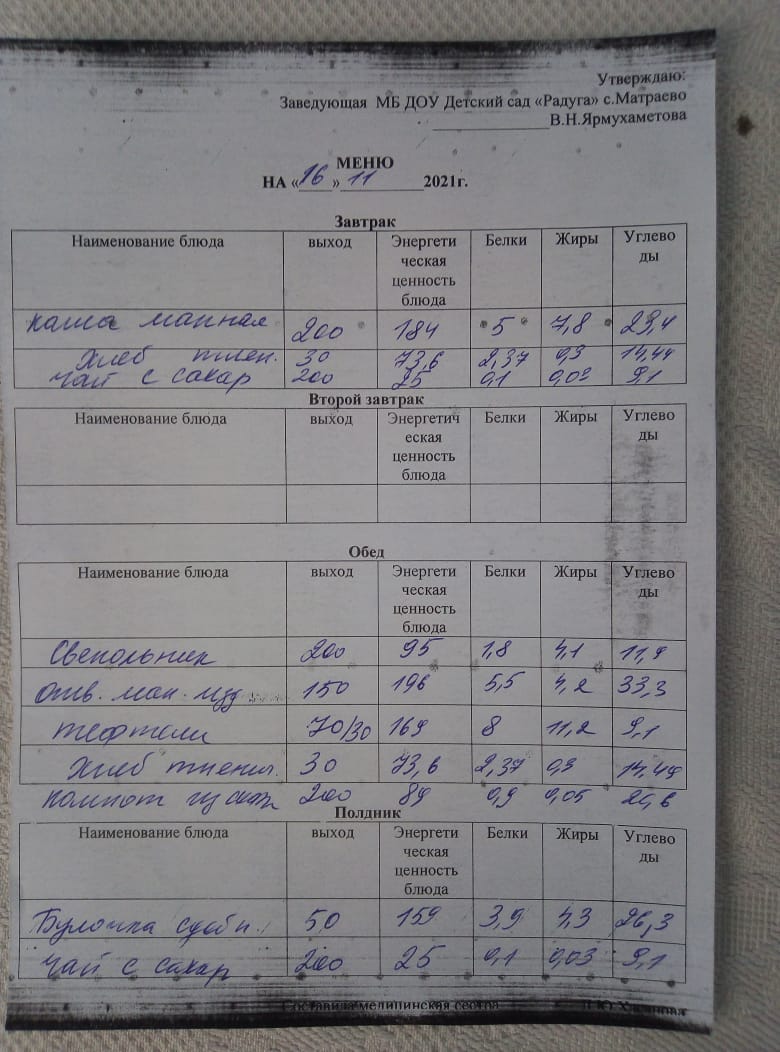 Утверждаю:
Заведующая МБ ДОУ Детский сад «Радуга» с.Матраево
______________В.Н.Ярмухаметова
МЕНЮ
НА «16» 11 2021г.
Завтрак
Наименование блюда выход Энергети Белки Жиры Углево
ческая ды
ценность
блюда
каша манная 200 184 5 7,8 23,4
хлеб пшен. 30 73,6 2,37 0,3 14,44
чай с сахар 200 25 0,1 0,03 9,1
Второй завтрак
Наименование блюда выход Энергетич Белки Жиры Углево
еская ды
ценность
блюда
Обед
Наименование блюда выход Энергети Белки Жиры Углево
ческая ды
ценность
блюда
Свекольник 200 95 1,8 4,1 11,9
отв. мак. изд 150 196 5,5 4,2 33,3
тефтели 70/30 169 8 11,2 9,1
хлеб пшенич. 30 73,6 2,37 0,3 14,44
компот 200 89 0,9 0,05
Полдник
Наименование блюда выход Энергети Белки Жиры Углево
ческая ды
ценность
блюда
Булочка сдобн. 50 159 3,9 4,3 26,3
чай с сахар 200 25 0,1 0,03 9,1
Составила медицинская сестра